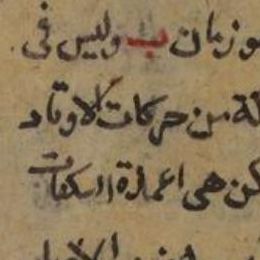 و زمان ب وليس في
لة من حركات الاوتاد
كن هي اعمدة السكنات